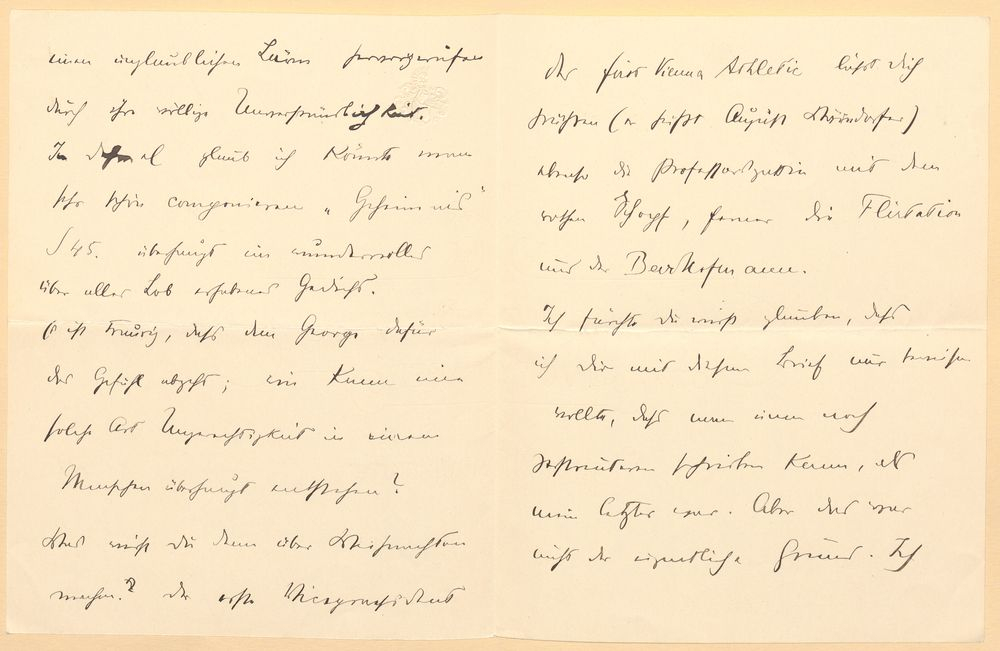 einen unglaublichen Lärm hervorgerufen
durch ihre völlige Unverständlichkeit.
glaub ich könnte man
sehr schön componieren „Geheimnis"
S 45. überhaupt ein wundervolles
über alles Lob erhabenes Gedicht.
Es ist traurig, dass dem George dafür
das Gefühl abgeht; wie kann eine
solche Art Ungerechtigkeit in einem
Menschen überhaupt entstehen?
Was wirst du denn über Weihnachten
machen? Der erste Vicepraesident
der first Vienna Athletic lässt dich
grüssen (er heisst August Wärndorfer)
ebenso die Professorsgattin mit dem
rothen Schopf, ferner die Flirtation
und der Beer Hofmann.
Ich fürchte du wirst glauben, dass
ich dir mit diesem Brief nur beweisen
wollte, dass man einen noch
zerstreuteren schreiben kann, als
mein letzter war. Aber das war
nicht der eigentliche Grund. Ich